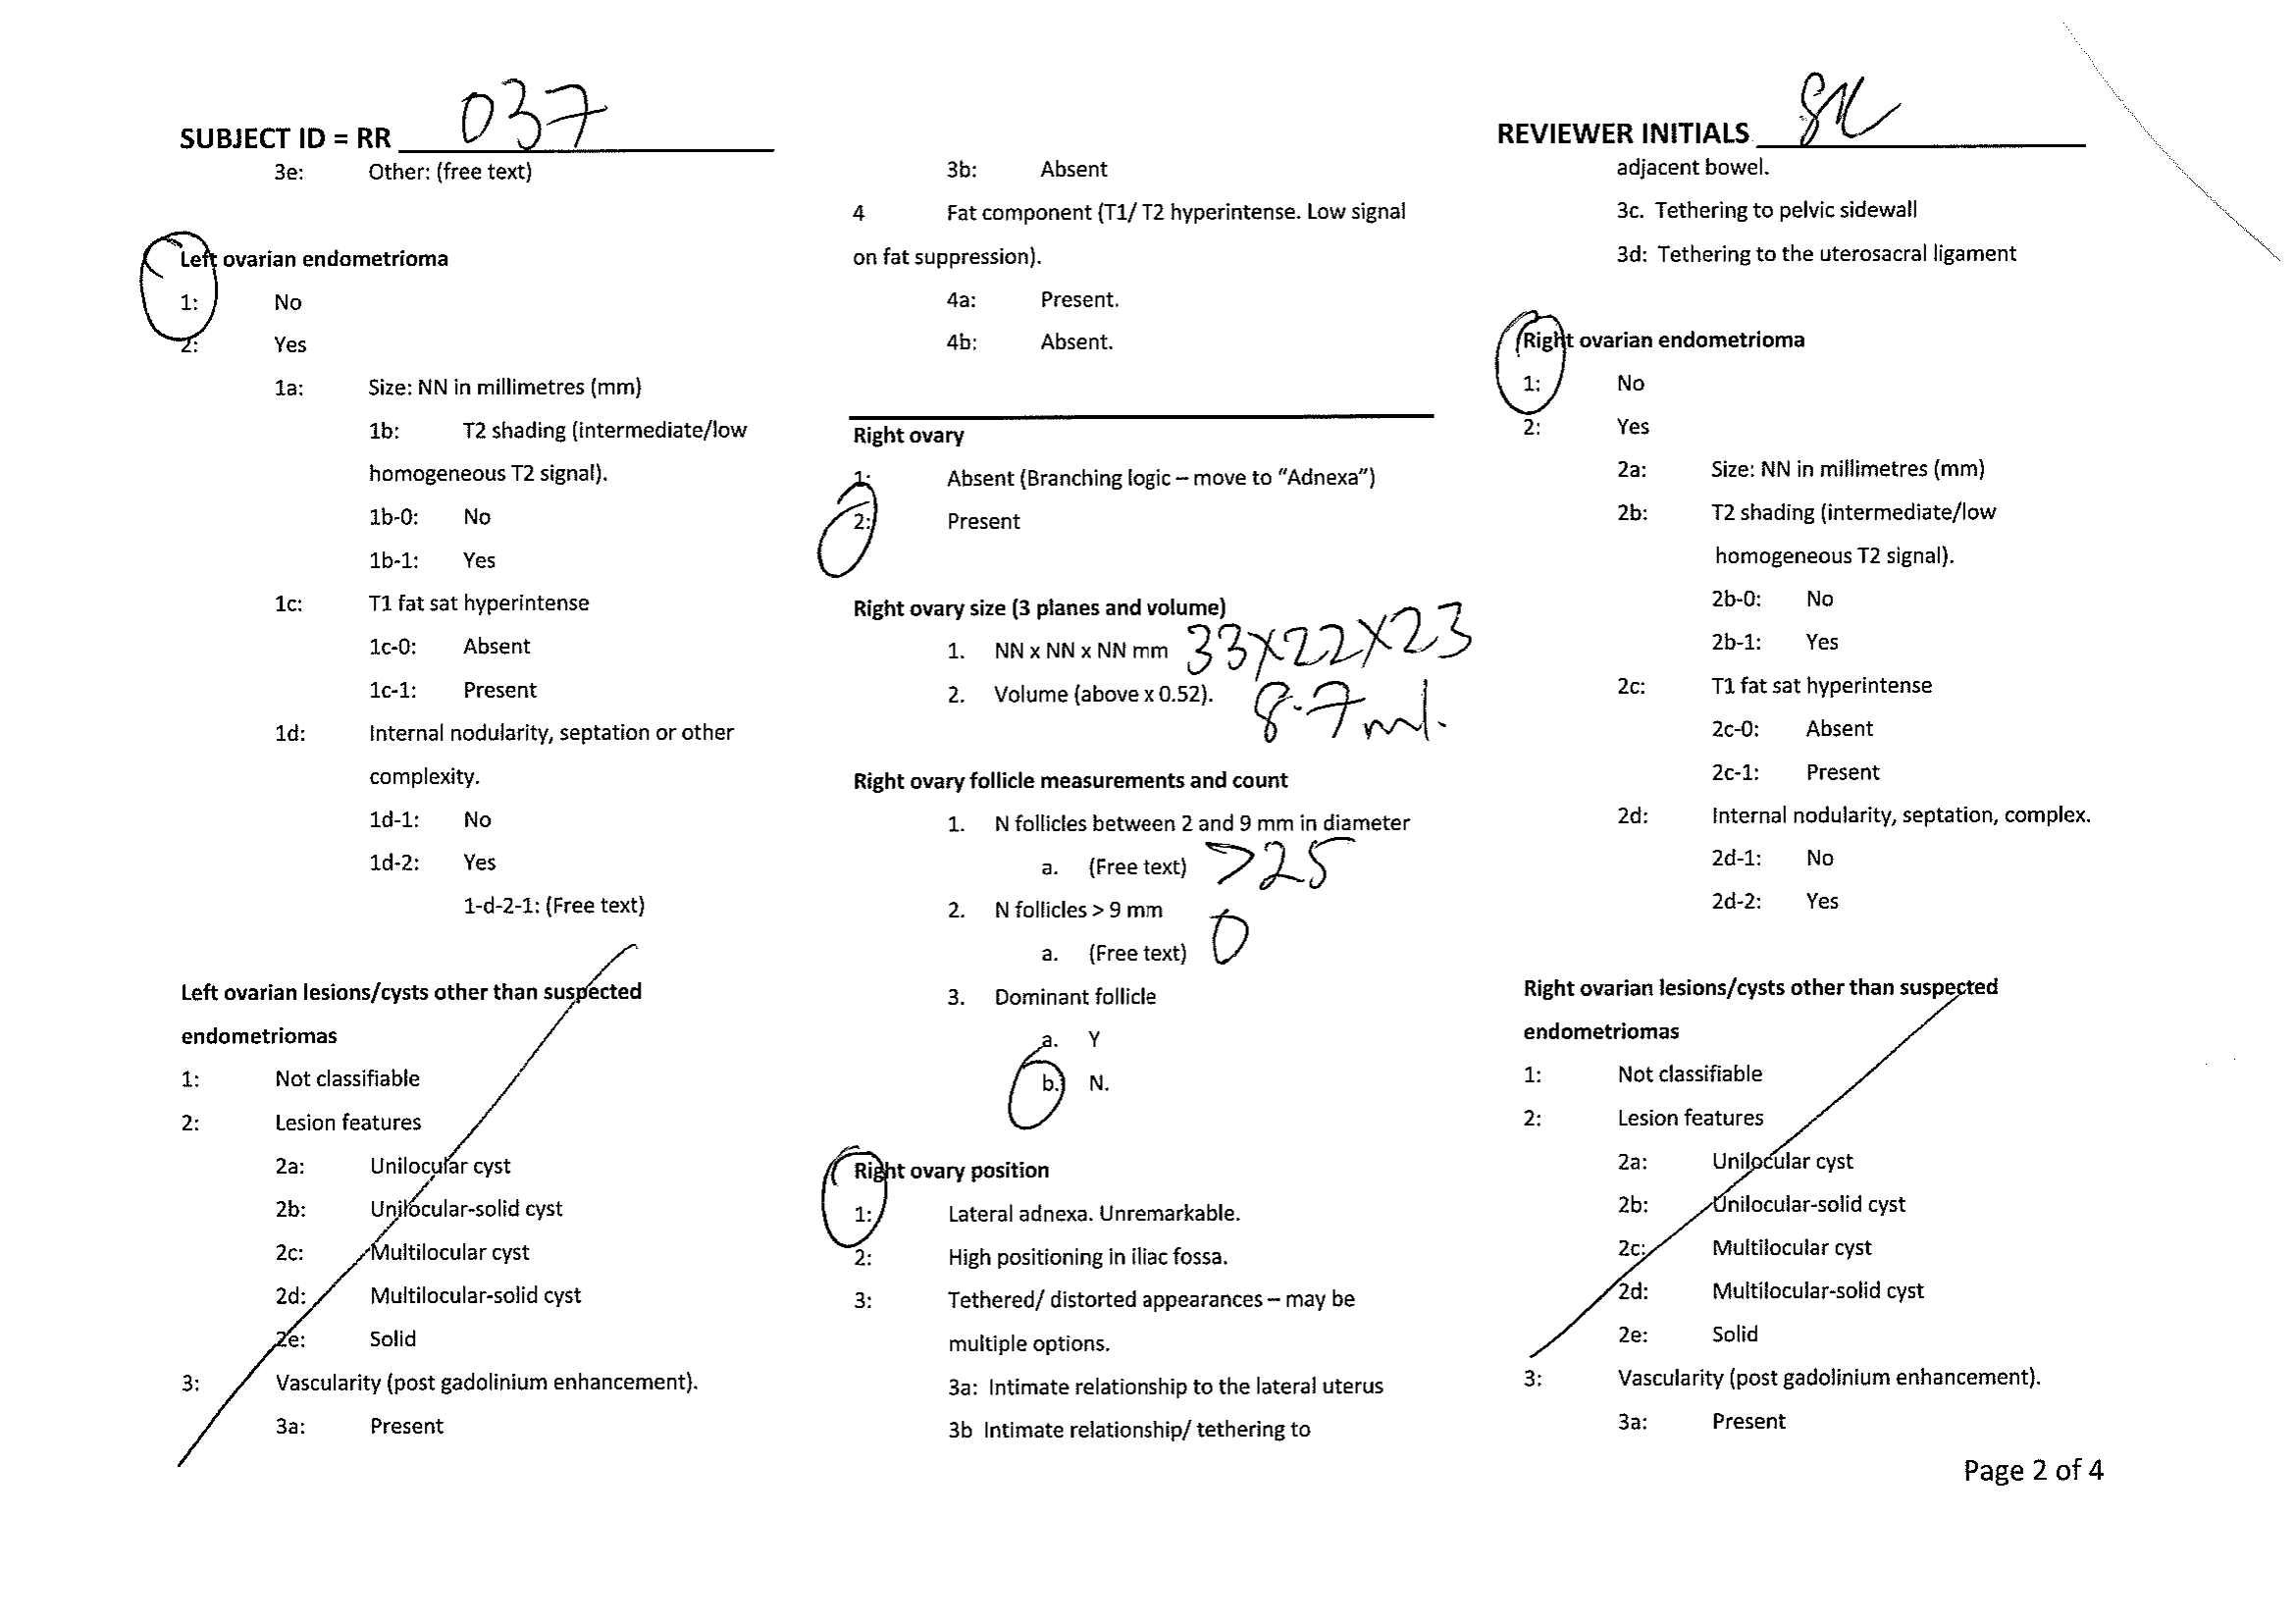 SUBJECT ID = RR 037
3e: Other: (free text)
Left ovarian endometrioma
1: No
2: Yes
1a: Size: NN in millimetres (mm)
1b: T2 shading (intermediate/low
homogeneous T2 signal).
1b-0: No
1b-1: Yes
1c: T1 fat sat hyperintense
1c-0: Absent
1c-1: Present
1d: Internal nodularity, septation or other
complexity.
1d-1: No
1d-2: Yes
1-d-2-1: (Free text)
Left ovarian lesions/cysts other than suspected
endometriomas
1: Not classifiable
2: Lesion features
2a: Unilocular cyst
2b: Unilocular-solid cyst
2c: Multilocular cyst
2d: Multilocular-solid cyst
2e: Solid
3: Vascularity (post gadolinium enhancement).
3a: Present
3b: Absent
4 Fat component (T1/ T2 hyperintense. Low signal
on fat suppression).
4a: Present.
4b: Absent.
Right ovary
1: Absent (Branching logic – move to “Adnexa”)
2: Present
Right ovary size (3 planes and volume)
1. NN x NN x NN mm 33x22x23
2. Volume (above x 0.52). 8.7ml.
Right ovary follicle measurements and count
1. N follicles between 2 and 9 mm in diameter
a. (Free text) >25
2. N follicles > 9 mm
a. (Free text) 0
3. Dominant follicle
a. Y
b. N.
Right ovary position
1: Lateral adnexa. Unremarkable.
2: High positioning in iliac fossa.
3: Tethered/ distorted appearances – may be
multiple options.
3a: Intimate relationship to the lateral uterus
3b Intimate relationship/ tethering to
REVIEWER INITIALS
adjacent bowel.
3c. Tethering to pelvic sidewall
3d: Tethering to the uterosacral ligament
Right ovarian endometrioma
1: No
2: Yes
2a: Size: NN in millimetres (mm)
2b: T2 shading (intermediate/low
homogeneous T2 signal).
2b-0: No
2b-1: Yes
2c: T1 fat sat hyperintense
2c-0: Absent
2c-1: Present
2d: Internal nodularity, septation, complex.
2d-1: No
2d-2: Yes
Right ovarian lesions/cysts other than suspected
endometriomas
1: Not classifiable
2: Lesion features
2a: Unilocular cyst
2b: Unilocular-solid cyst
2c: Multilocular cyst
2d: Multilocular-solid cyst
2e: Solid
3: Vascularity (post gadolinium enhancement).
3a: Present
Page 2 of 4